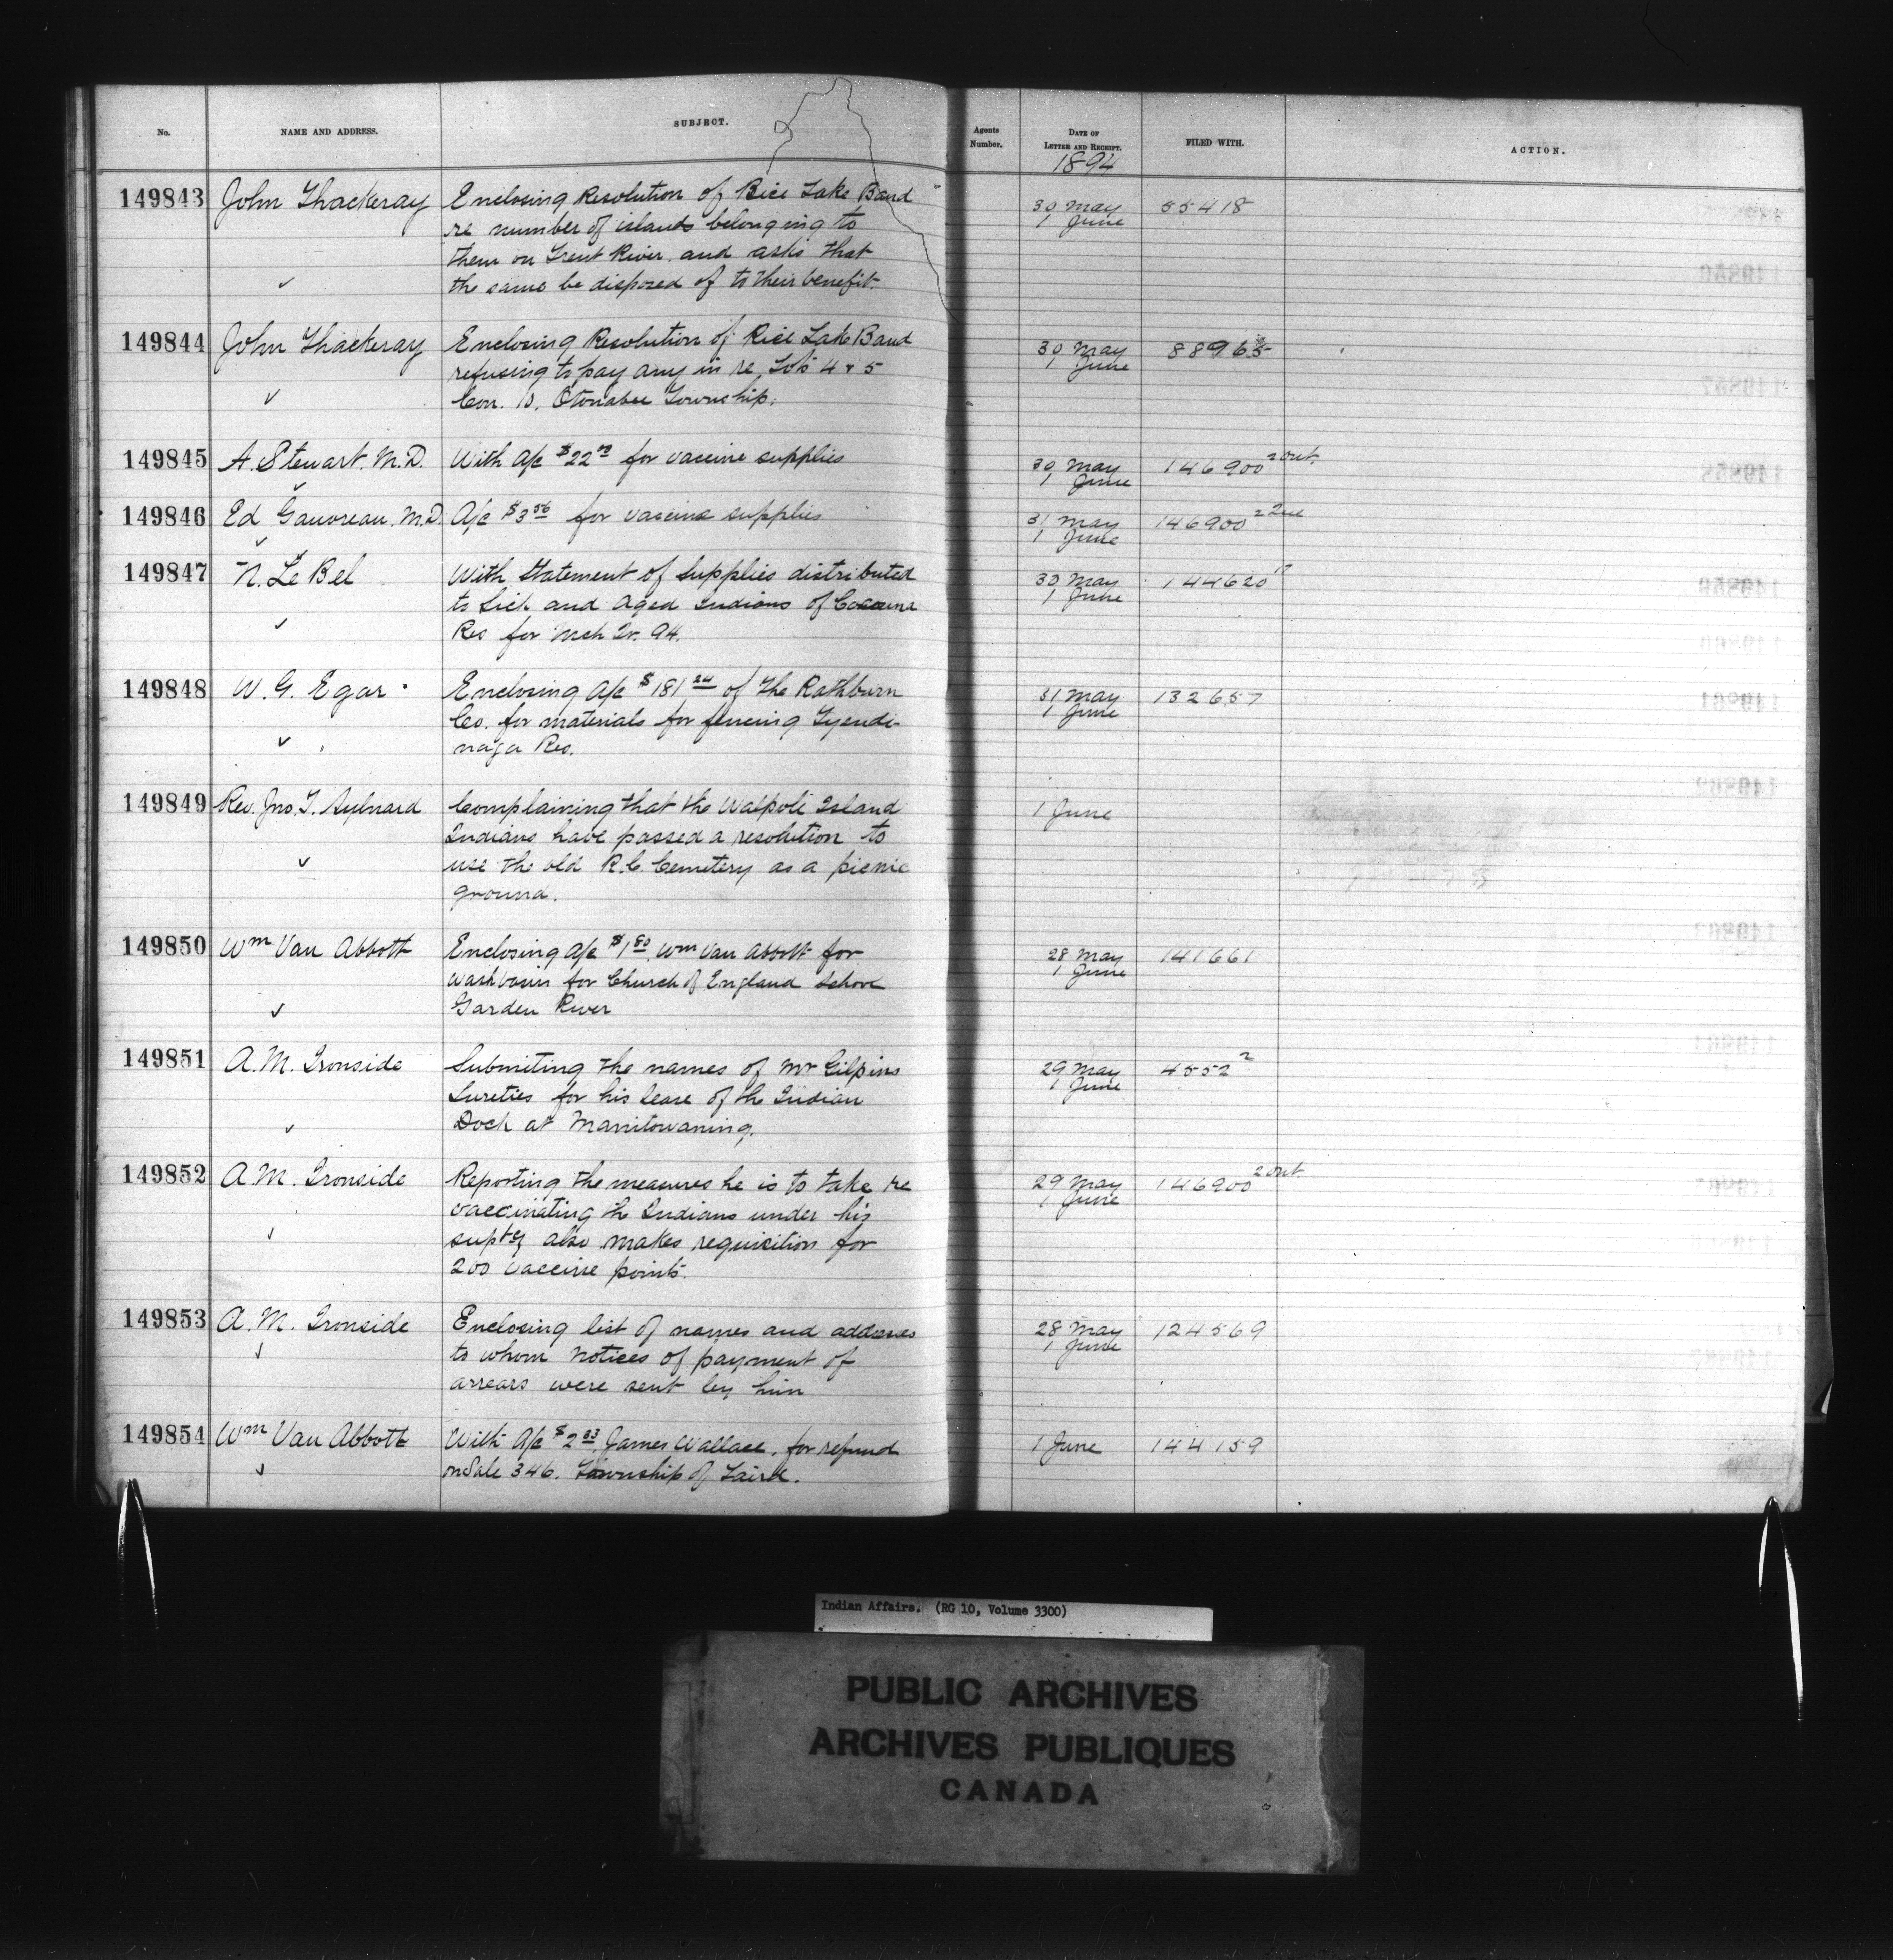 No. NAME AND ADDRESS. SUBJECT. Agents Number. DATE OF LETTER AND RECEIPT. FILED WITH. ACTION.
1894
149843 John Thackeray Enclosing Resolution of Rice Lake Band 30 May 55418
re number of islands belonging to 1 June
them on Trent River. and asks that
✓ the same be disposed of to their benefit.
149844 John Thackeray Enclosing Resolution of Rice Lake Band 30 May 88965
refusing to pay any in re Lots 4 & 5 1 June
✓ Con. Otonabee Township.
149845 A. Stewart. M.D. With A/c $22 for vaccine supplies 30 May 146900 2 out.
✓ 1 June
149846 Ed Gauvreau. M.D. A/c $3 56 for vaccine supplies 31 May 146900
✓ 1 June
149847 N. Le Bel With Statement of Supplies distributed 30 May 144620
to Sick and Aged Indians of Cacouna 1 June
✓ Res for Mch Qr. 94.
149848 W. G. Egar Enclosing A/c $181 24 of The Rathburn 31 May 132657
Co. for materials for fencing Tyendi- 1 June
✓ naga Res.
149849 Rev. Jno. T. Aylward Complaining that the Walpole Island 1 June
Indians have passed a resolution to
✓ use the old R.C. Cemetery as a picnic
ground.
149850 Wm Van Abbott Enclosing A/c $1 80. Wm Van Abbott for 28 May 141661
washbasin for Church of England School 1 June
✓ Garden River
149851 A. M. Ironside Submiting the names of Mr Gilpins 29 May 4552 2
Sureties for his lease of the Indian 1 June
✓ Dock at Manitowaning.
149852 A. M. Ironside Reporting the measures he is to take re 29 May 146900 2 out.
vaccinating the Indians under his 1 June
✓ suptcy also makes requisition for
200 vaccine points.
149853 A. M. Ironside Enclosing list of names and addresses 28 May 124569
✓ to whom notices of payment of 1 June
arrears were sent by him
149854 Wm Van Abbott With A/c $2 83. James Wallace. for refund 1 June 144159
✓ on Sale 346. Township of Laird.
Indian Affairs. (RG 10, Volume 3300)
PUBLIC ARCHIVES
ARCHIVES PUBLIQUES
CANADA